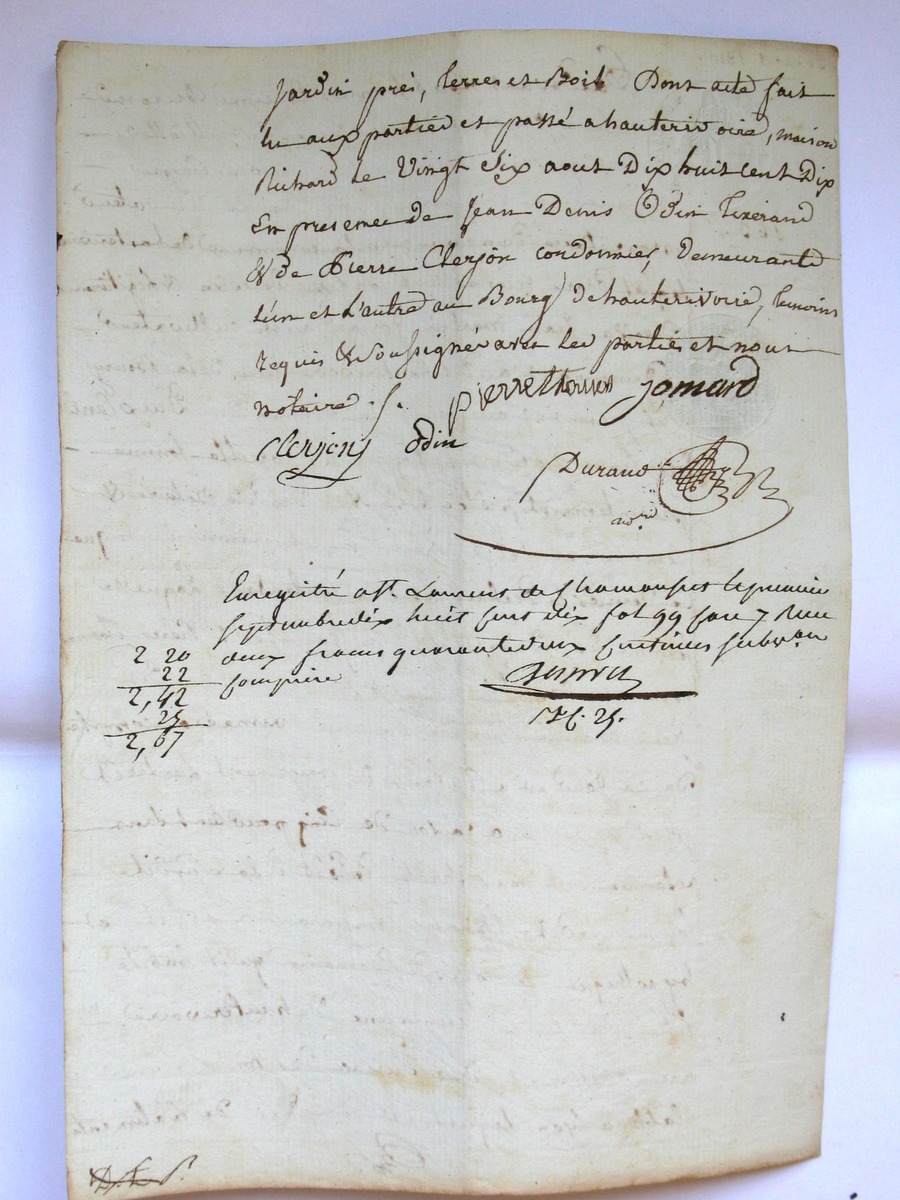 Jardin prés, terres et Bois Dont acte fait
lu aux parties et passé a hauterivoire, maison
Richard le Vingt Six aout Dix huit Cent Dix
En presence de Jean Denis Odin tixerand
& de Pierre Clerjon cordonnier, Demeurants
l'un et L'autre au Bourg de hauterivoire, temoins
requis & Soussignés avec les parties et nous
notaire ./.
pierre jomard
Clerjon odin
Durand
no.re
Enregistré a St. Laurent de Chamousset le premier
Septembre dix huit cent dix fol 99 Case 7 Recu
deux francs quarante deux centimes subv.on
comprise
2 20
22
2,42
25
2,67
25.